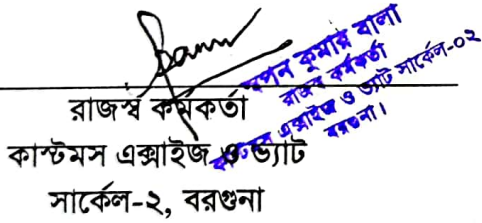 রাজস্ব কর্মকর্তা
কাস্টমস এক্সাইজ ও ভ্যাট
সার্কেল-২, বরগুনা
স্বপন কুমার বালা
রাজস্ব কর্মকর্তা
কাস্টমস এক্সাইজ ও ভ্যাট সার্কেল-০২
বরগুনা।